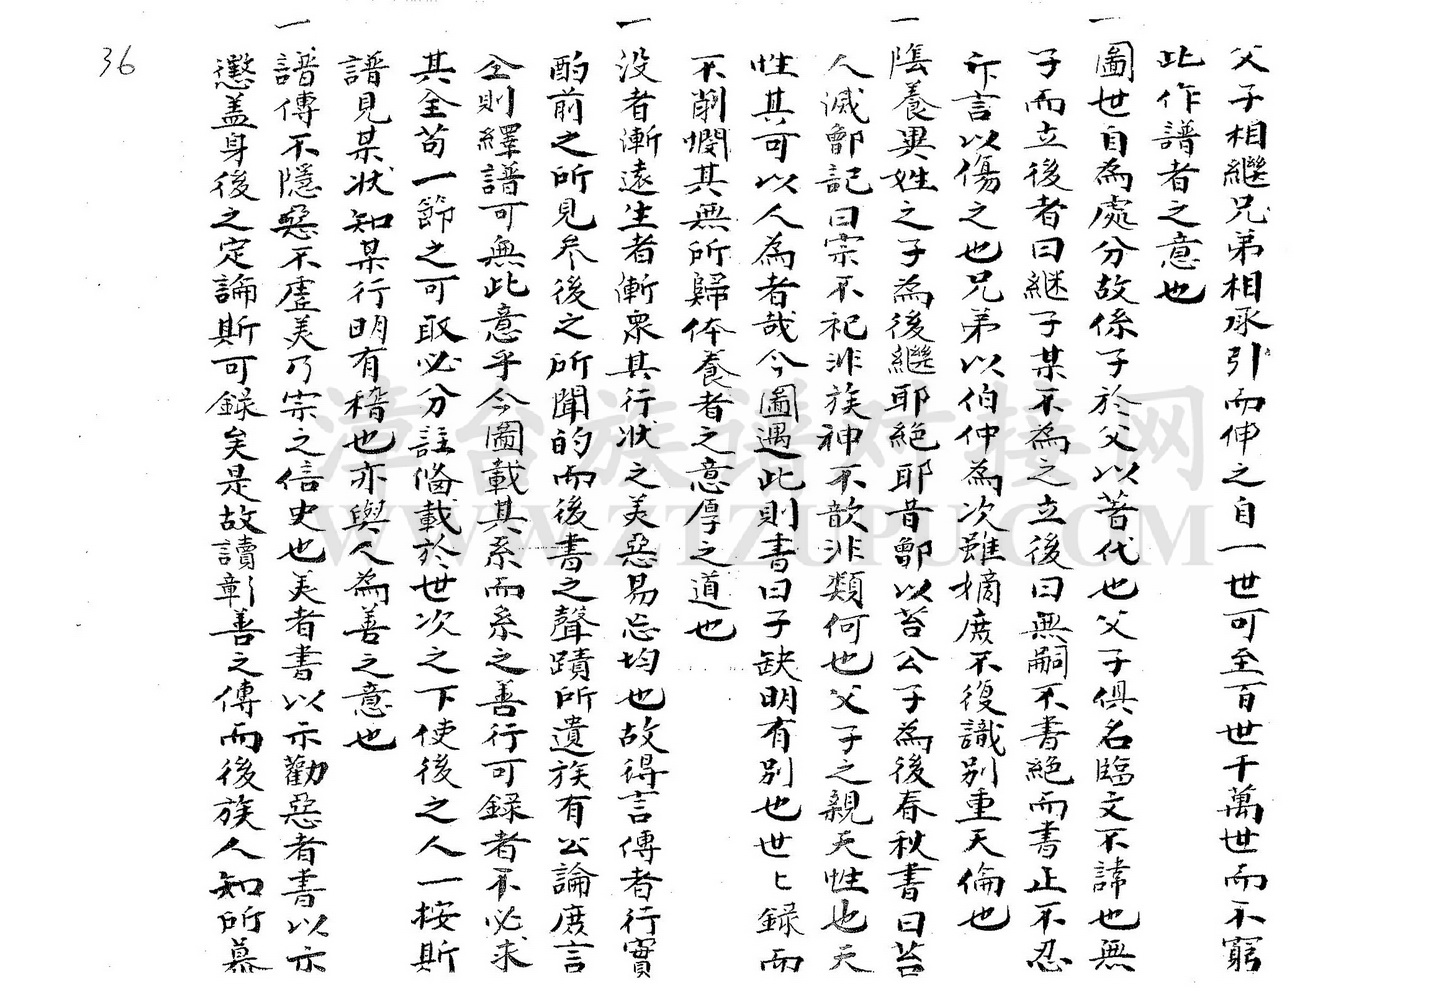 父子相繼兄弟相承引而伸之自一世可至百世千萬世而不窮
此作譜者之意也
一圖世自為處分故係子於父以著代也父子俱名臨文不諱也無
子而立後者曰継子某不為之立後曰無嗣不書絕而書止不忍
斥言以傷之也兄弟以伯仲為次雖摘庶不復識别重天倫也
一陰養異姓之子為後繼耶絕耶昔鄫以莒公子為後春秋書曰莒
人滅鄫記曰宗不祀非族神不歆非類何也父子之親天性也天
性其可以人為者哉今圖遇此則書曰子缺明有别也世〻録而
不削憫其無所歸体養者之意厚之道也
一没者漸遠生者漸衆其行狀之美惡易忘均也故得言傳者行實
酌前之所見叅後之所聞的而後書之聲蹟所遺族有公論庶言
全則繹譜可無此意乎今圖載其系而系之善行可録者不必求
其全苟一節之可取必分註俻載於世次之下使後之人一按斯
譜見某狀知某行明有稽也亦與人為善之意也
一譜傳不隱惡不虛美乃宗之信史也美者書以示勸惡者書以示
懲盖身後之定論斯可録矣是故讀彰善之傳而後族人知所慕
36
漳台族谱对接网
WWW.ZTZUPU.COM